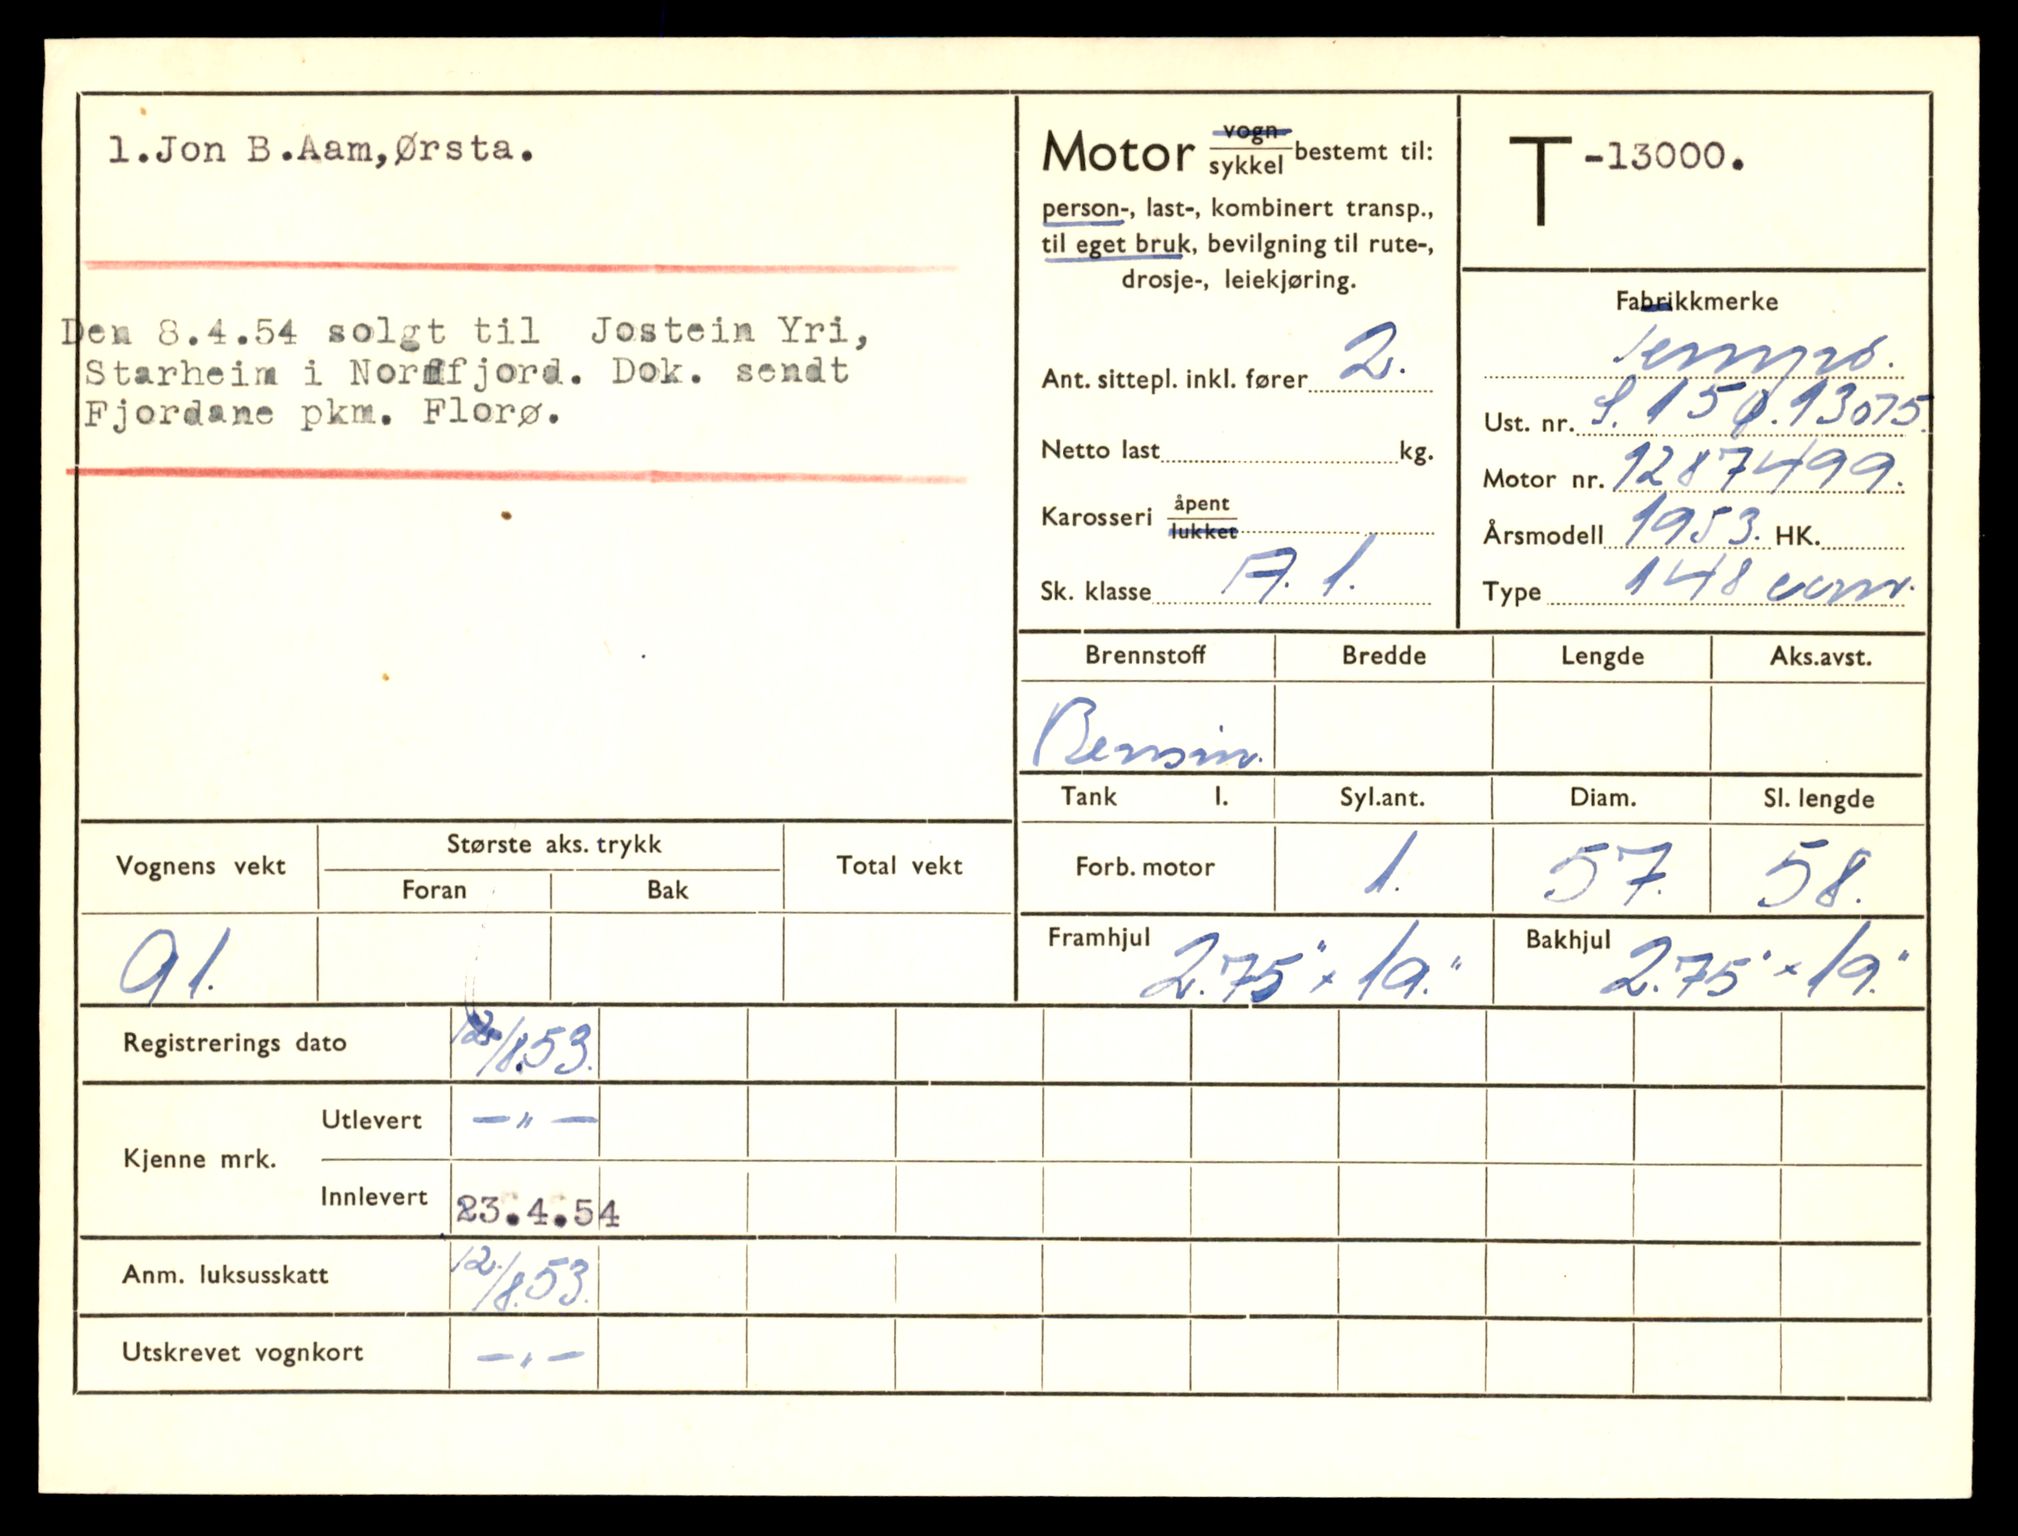 1.Jon B.Aam,Ørsta.
Den 8.4.54 solgt til Jostein Yri,
Starheim i Nordfjord. Dok. sendt
Fjordane pkm. Florø.
Motor vogn/sykkel bestemt til:
person-, last-, kombinert transp.,
til eget bruk, bevilgning til rute-,
drosje-, leiekjøring.
Ant. sittepl. inkl. fører 2.
Netto last kg.
Karosseri åpent/lukket
Sk. klasse A. 1.
T -13000.
Fabrikkmerke
Tempo.
Ust. nr. S. 150.13075.
Motor nr. 1287499.
Årsmodell 1953. HK.
Type 148 ccm.
Brennstoff Bredde Lengde Aks.avst.
Bensin.
Tank l. Syl.ant. Diam. Sl. lengde
Forb. motor 1. 57. 58.
Framhjul 2.75" x 19." Bakhjul 2.75" x 19."
Vognens vekt Største aks. trykk Total vekt
Foran Bak
91.
Registrerings dato 12/8.53.
Kjenne mrk. Utlevert —"—
Innlevert 23.4.54
Anm. luksusskatt 12./8.53.
Utskrevet vognkort —"—